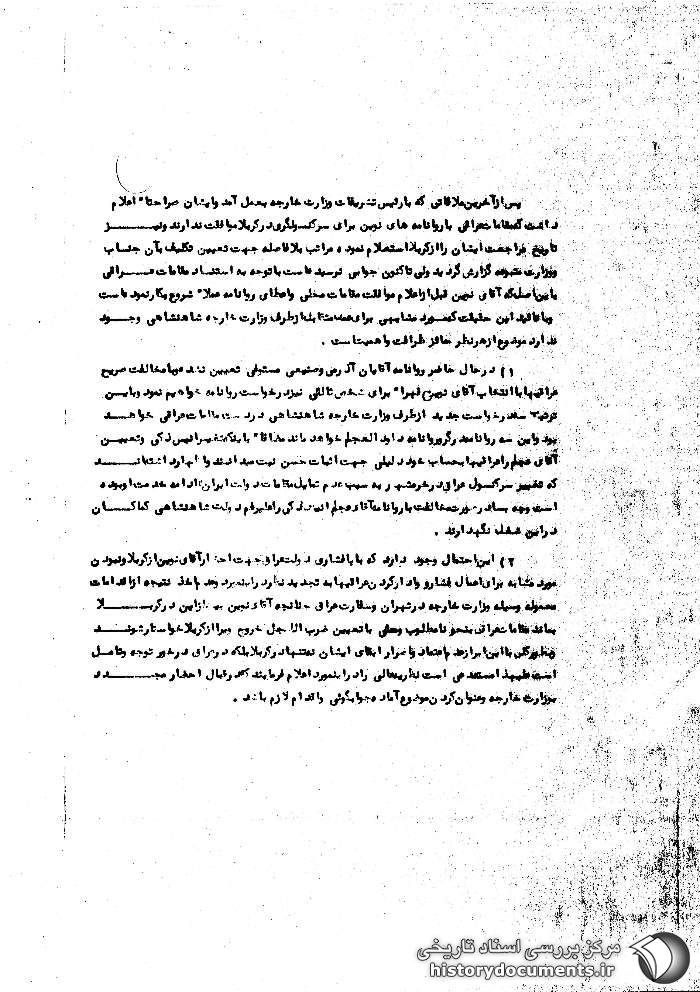 پس از آخرین ملاقاتی که با رئیس تشریفات وزارت خارجه بعمل آمد و ایشان صراحتا" اعلام
داشت که مقامات عراقی با روانامه های نوین برای سرکنسولگری در کربلا موافقت ندارند و نیز
تاریخ مراجعت ایشان را از کربلا استعلام نمود مراتب بلافاصله جهت تعیین تکلیف به آن جناب
وزارت متبوعه گزارش گردید ولی تاکنون جوابی نرسیده است با توجه به استناد مقامات عراقی
باین اصل که آقای نوین قبل از اعلام موافقت مقامات محلی و اعطای روانامه عملا" شروع بکار نموده است
و با تائید این حقیقت که مورد مشابهی برای متقابل از طرف وزارت خارجه شاهنشاهی وجود
ندارد موضوع از هر نظر حائز ظرافت و اهمیت است .
۱) در حال حاضر روانامه آقایان آذرمی و صنیعی مستوفی تعیین نشده و با مخالفت صریح
عراقیها با انتخاب آقای برای شخص ثالثی نیز درخواست روانامه خواهیم نمود و باین
ترتیب سه درخواست جدید از طرف وزارت خارجه شاهنشاهی در دست مقامات عراقی خواهد
بود و این سه روانامه در گرو روانامه داود العجلم خواهد ماند مضافا" باینکه تغییر انیس زکی و تعیین
آقای عجلم را عراقیها بحساب خود دلیلی جهت اثبات حسن نیت میدانند و اظهار داشته اند
که تغییر سرکنسول عراق در خرمشهر به سبب عدم تمایل مقامات دولت ایران از ادامه خدمت او بوده
است و چه بسا در صورت مخالفت با روانامه آقای عجلم انیس زکی را علیرغم دولت شاهنشاهی کماکان
در این شغل نگهدارند .
۲) این احتمال وجود دارد که با پافشاری دولت عراق جهت احضار آقای نوین از کربلا و نمودن
مورد مشابه برای اعمال فشار و وادار کردن عراقیها به تجدید نظر در اینمورد و عدم اخذ نتیجه از اقدامات
معموله وسیله وزارت خارجه در تهران و سفارت عراق چنانچه آقای نوین بعد از این در کربلا
بماند مقامات عراقی بنحو نامطلوب و علنی با تعیین ضرب الاجل خروج ویرا از کربلا خواستار شوند
و بطور کلی با این امر از نظر اصرار ابقای ایشان نه تنها در کربلا بلکه در عراق در خور توجه و تامل
است علیهذا مستدعی است نظر عالی را در اینمورد اعلام فرمایند که در قبال احضار مجدد
بوزارت خارجه و عنوان کردن موضوع آماده جوابگوئی و اقدام لازم باشد .
مرکز بررسی اسناد تاریخی
historydocuments.ir